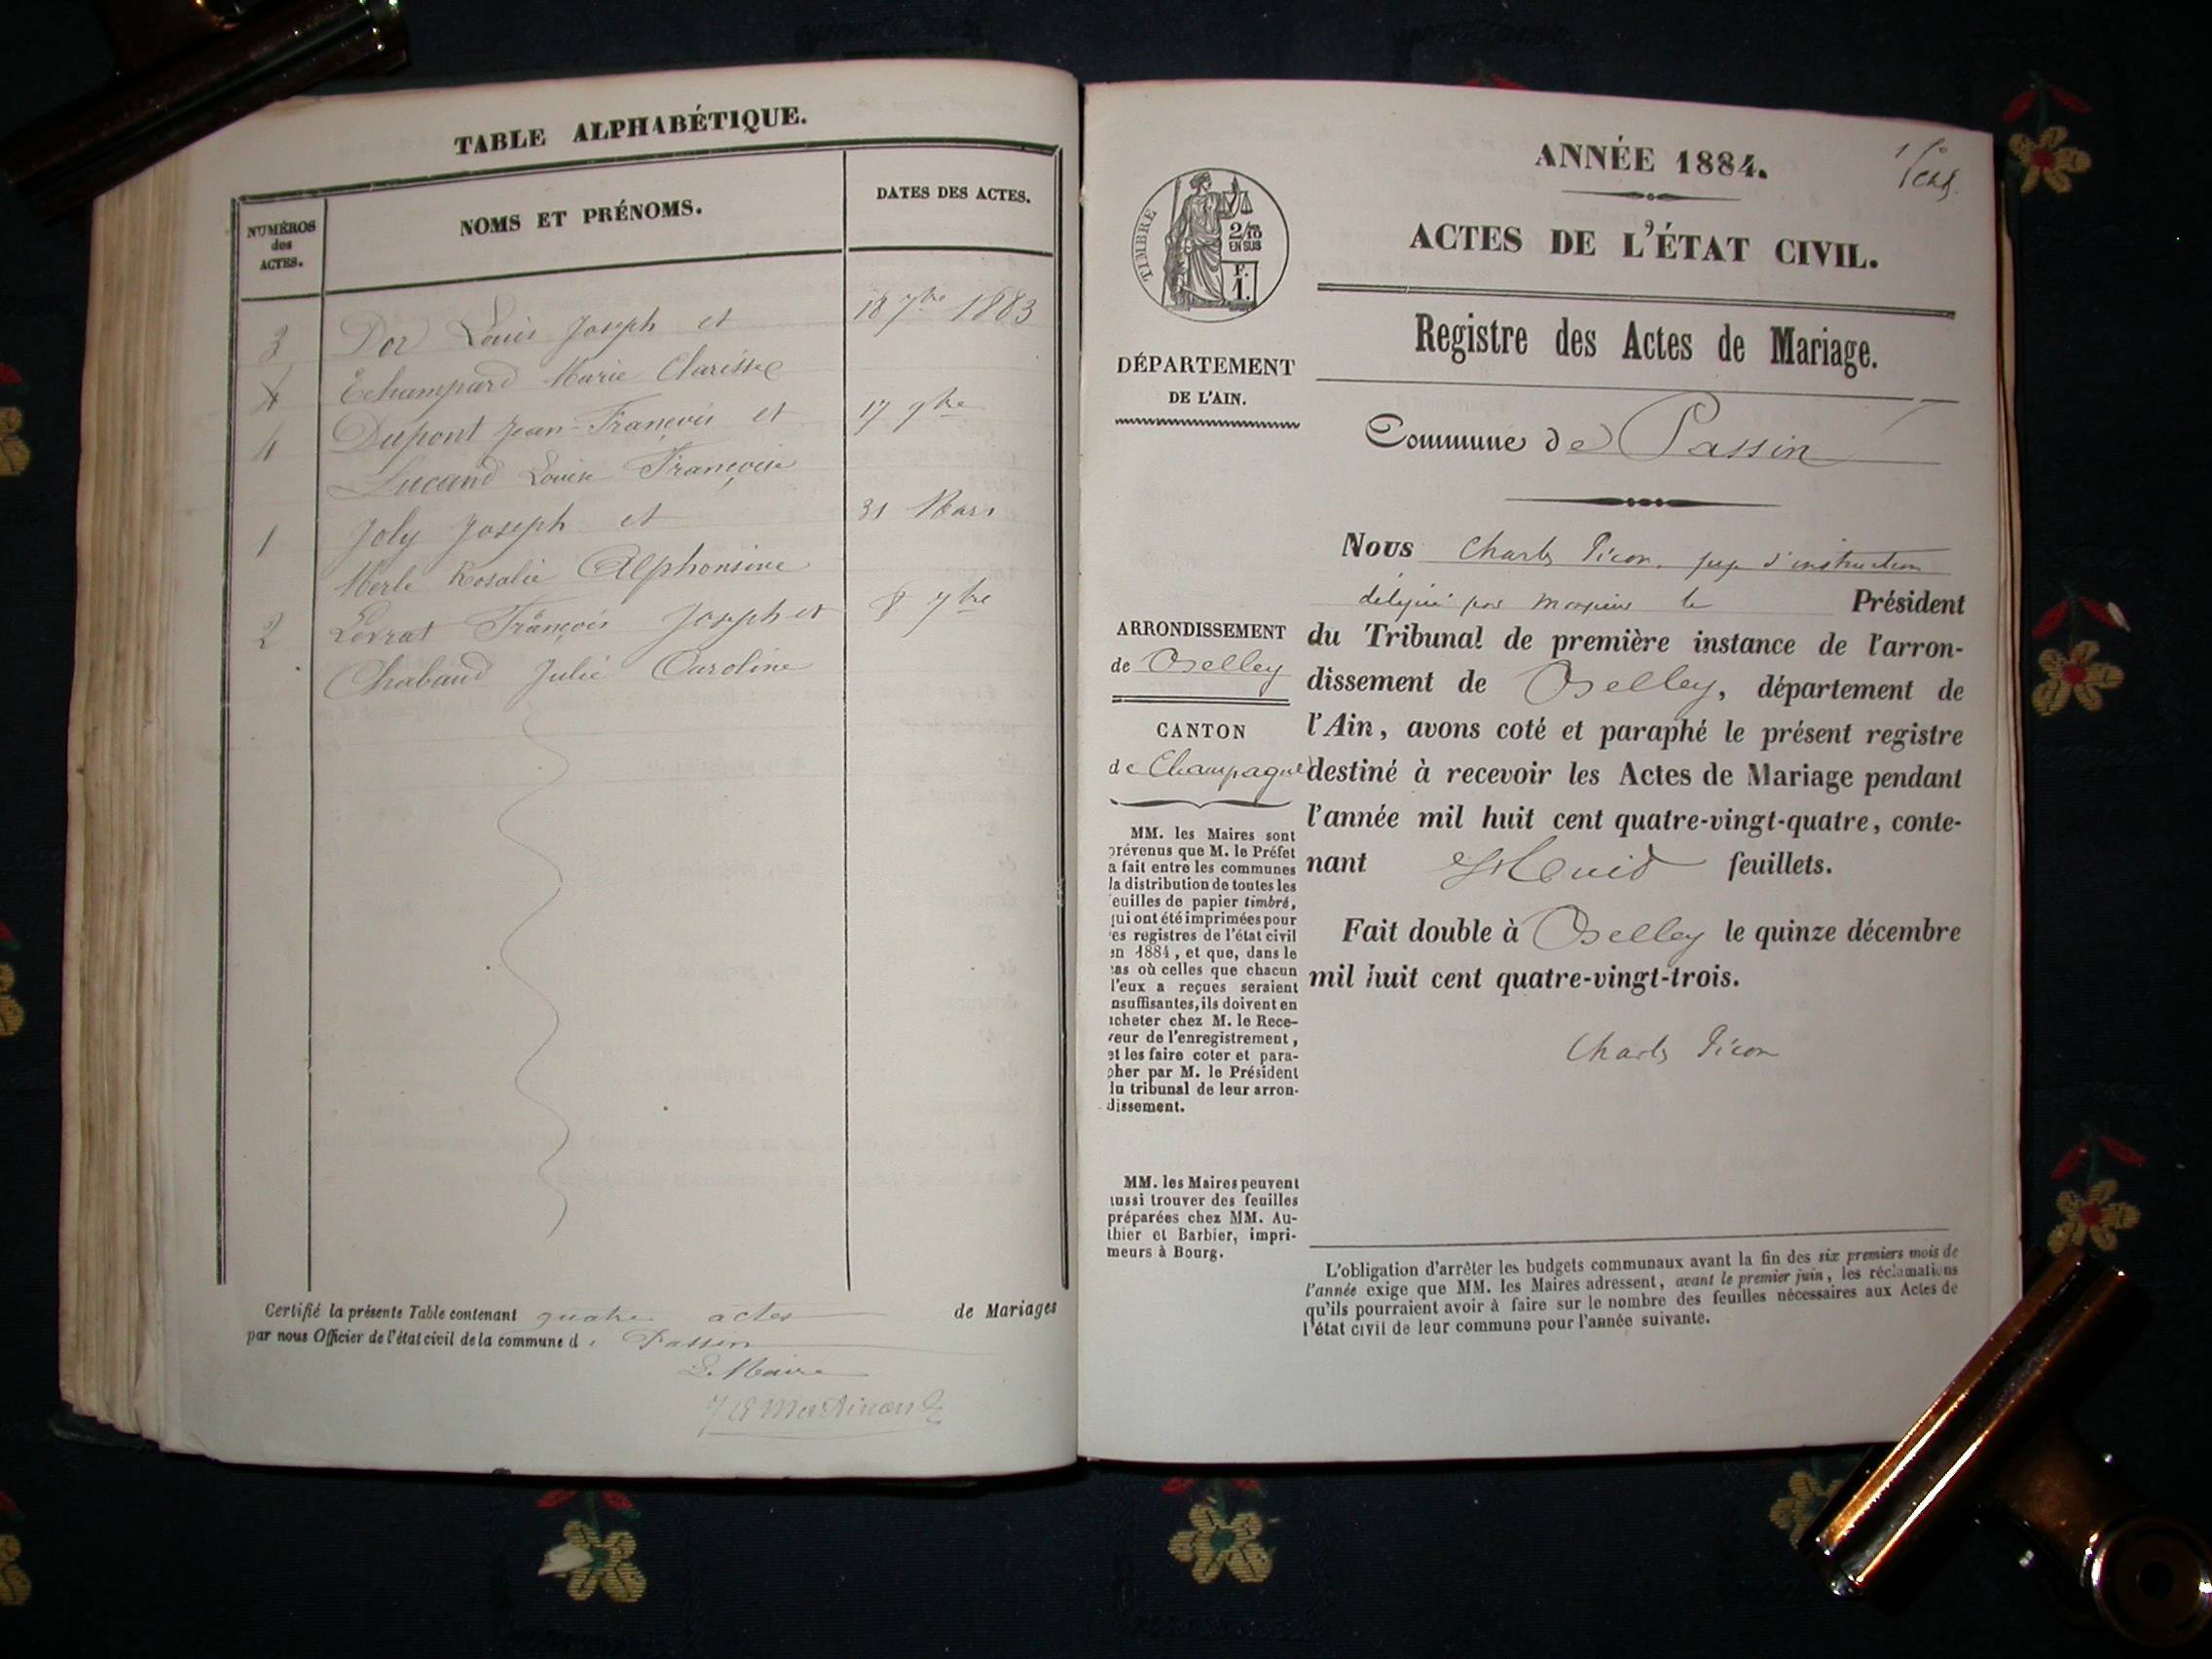 TABLE ALPHABÉTIQUE.
NUMÉROS
des
ACTES.
NOMS ET PRÉNOMS.
DATES DES ACTES.
3 Dor Louis Joseph et 18 7bre 1883
Echampard Marie Clarisse
4 Dupont Jean-François et 17 9bre
Lucand Louise Françoise
1 Joly Joseph et 31 Mars
Merle Rosalie Alphonsine
2 Levrat François Joseph et 8 7bre
Chabaud Julie Caroline
Certifié la présente Table contenant quatre actes de Mariages
par nous Officier de l'état civil de la commune de Passin
Le Maire
Martinand
ANNÉE 1884.
ACTES DE L'ÉTAT CIVIL.
TIMBRE
2/10
EN SUS
F.
1.
Registre des Actes de Mariage.
DÉPARTEMENT
DE L'AIN.
Commune de Passin
Nous Charles Picon, juge d'instruction
délégué par Monsieur le Président
du Tribunal de première instance de l'arron-
dissement de Belley, département de
l'Ain, avons coté et paraphé le présent registre
destiné à recevoir les Actes de Mariage pendant
l'année mil huit cent quatre-vingt-quatre, conte-
nant feuillets.
Fait double à Belley le quinze décembre
mil huit cent quatre-vingt-trois.
Charles Picon
ARRONDISSEMENT
de Belley
CANTON
de Champagne
MM. les Maires sont
prévenus que M. le Préfet
a fait entre les communes
la distribution de toutes les
euilles de papier timbré,
qui ont été imprimées pour
es registres de l'état civil
en 1884, et que, dans le
cas où celles que chacun
l'eux a reçues seraient
nsuffisantes, ils doivent en
acheter chez M. le Rece-
veur de l'enregistrement,
et les faire coter et para-
pher par M. le Président
du tribunal de leur arron-
dissement.
MM. les Maires peuvent
aussi trouver des feuilles
préparées chez MM. Au-
thier et Barbier, impri-
meurs à Bourg.
L'obligation d'arrêter les budgets communaux avant la fin des six premiers mois de
l'année exige que MM. les Maires adressent, avant le premier juin, les réclamations
qu'ils pourraient avoir à faire sur le nombre des feuilles nécessaires aux Actes de
l'état civil de leur commune pour l'année suivante.